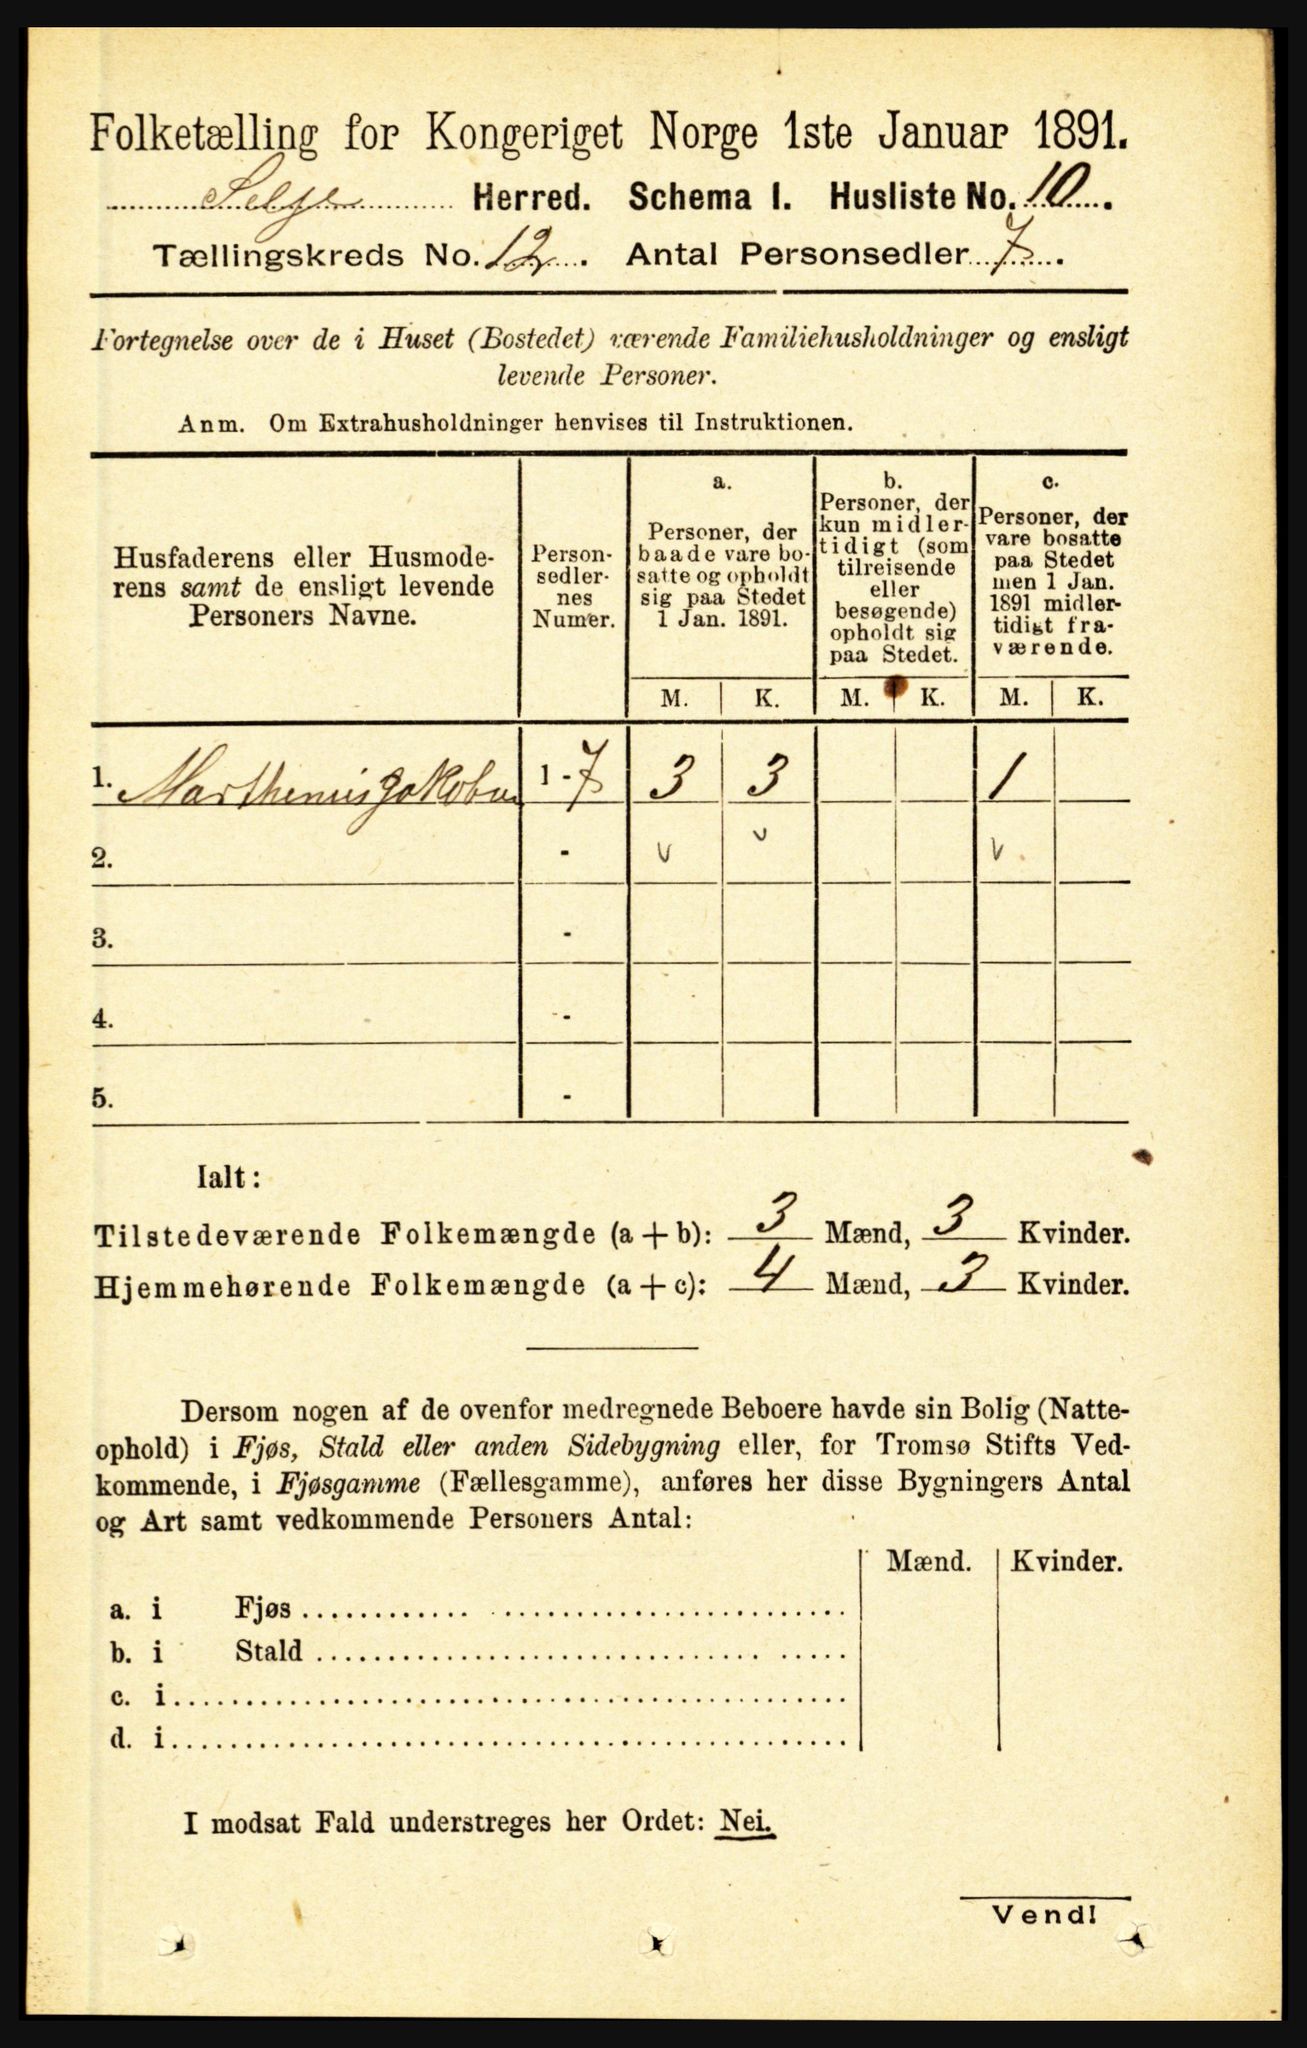 Folketælling for Kongeriget Norge 1ste Januar 1891.
Selje Herred. Schema I. Husliste No. 10.
Tællingskreds No. 12. Antal Personsedler 7.
Fortegnelse over de i Huset (Bostedet) værende Familiehusholdninger og ensligt
levende Personer.
Anm. Om Extrahusholdninger henvises til Instruktionen.
Husfaderens eller Husmode-
rens samt de ensligt levende
Personers Navne.
Person-
sedler-
nes
Numer.
a.
Personer, der
baade vare bo-
satte og opholdt
sig paa Stedet
1 Jan. 1891.
b.
Personer, der
kun midler-
tidigt (som
tilreisende
eller
besøgende)
opholdt sig
paa Stedet.
c.
Personer, der
vare bosatte
paa Stedet
men 1 Jan.
1891 midler-
tidigt fra-
værende.
M. K. M. K. M. K.
1. Marthenus Jakobsen 1 - 7 3 3 1
2. - v v v
3. -
4. -
5. -
Ialt:
Tilstedeværende Folkemængde (a + b): 3 Mænd, 3 Kvinder.
Hjemmehørende Folkemængde (a + c): 4 Mænd, 3 Kvinder.
Dersom nogen af de ovenfor medregnede Beboere havde sin Bolig (Natte-
ophold) i Fjøs, Stald eller anden Sidebygning eller, for Tromsø Stifts Ved-
kommende, i Fjøsgamme (Fællesgamme), anføres her disse Bygningers Antal
og Art samt vedkommende Personers Antal:
Mænd. Kvinder.
a. i Fjøs
b. i Stald
c. i
d. i
I modsat Fald understreges her Ordet: Nei.
Vend!